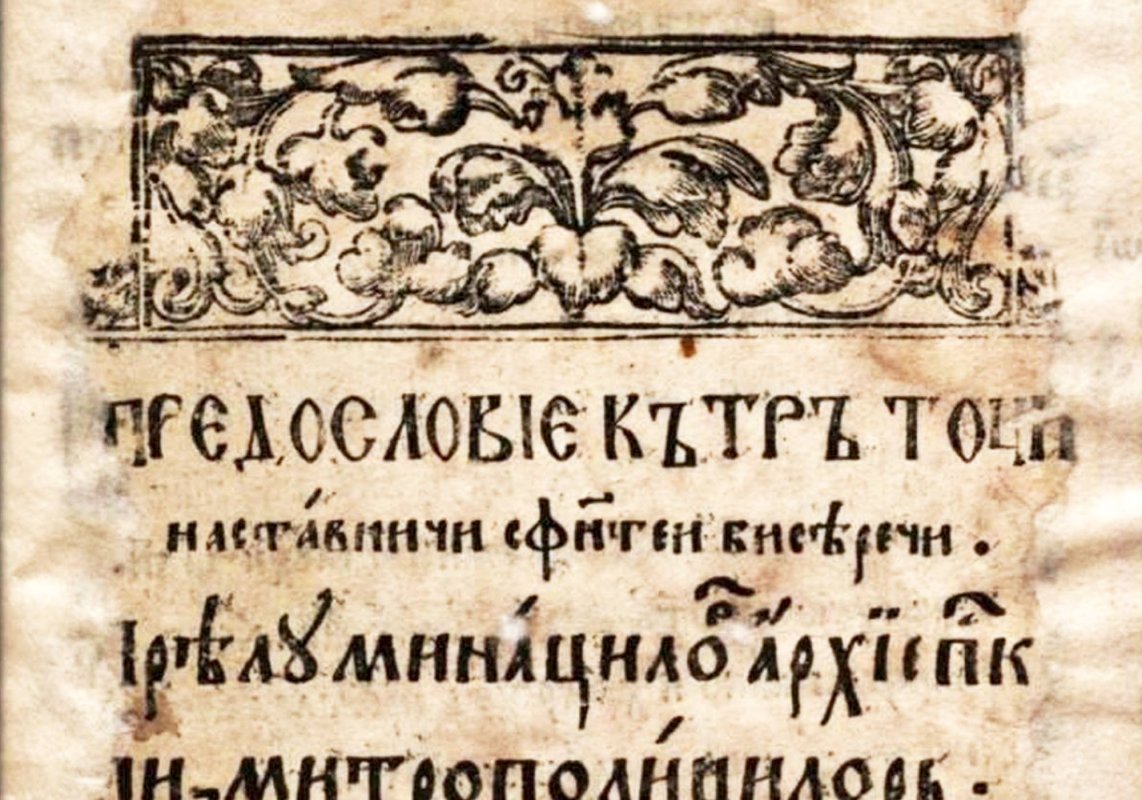 ПРЕДОСЛОВІЕ КЪТРЪ ТОЦИ
наста́вничи сфн҃теи бисѣречи .
Прѣлꙋмина́цилѡ҃ а҆́рхїеп҃к
ши митрополи́цилорь .